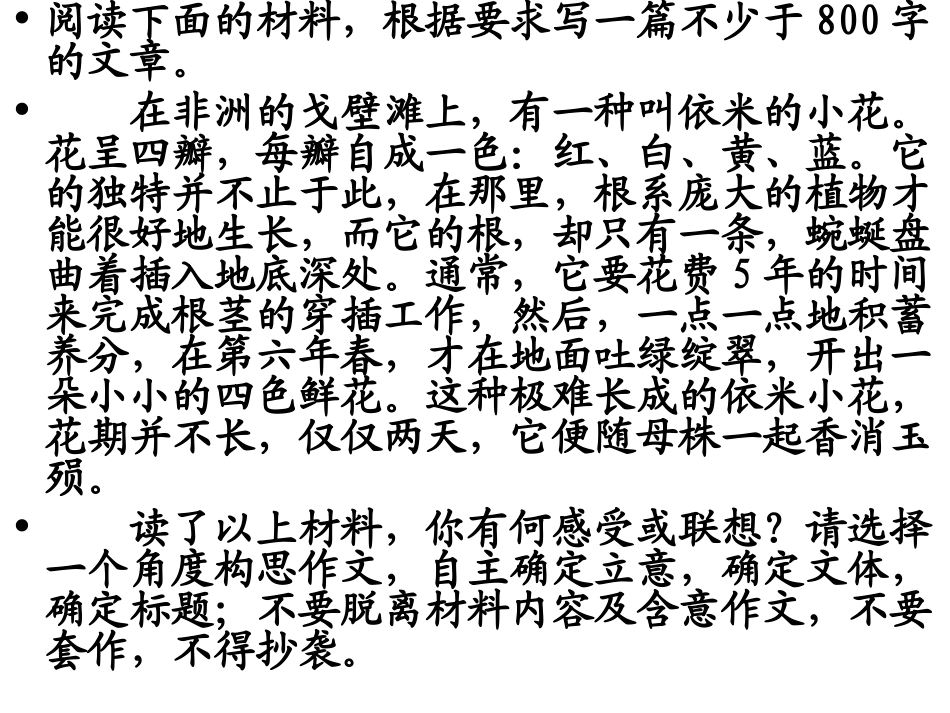 • 阅读下面的材料，根据要求写一篇不少于 800 字
的文章。
• 在非洲的戈壁滩上，有一种叫依米的小花。
花呈四瓣，每瓣自成一色：红、白、黄、蓝。它
的独特并不止于此，在那里，根系庞大的植物才
能很好地生长，而它的根，却只有一条，蜿蜒盘
曲着插入地底深处。通常，它要花费 5 年的时间
来完成根茎的穿插工作，然后，一点一点地积蓄
养分，在第六年春，才在地面吐绿绽翠，开出一
朵小小的四色鲜花。这种极难长成的依米小花，
花期并不长，仅仅两天，它便随母株一起香消玉
殒。
• 读了以上材料，你有何感受或联想？请选择
一个角度构思作文，自主确定立意，确定文体，
确定标题；不要脱离材料内容及含意作文，不要
套作，不得抄袭。